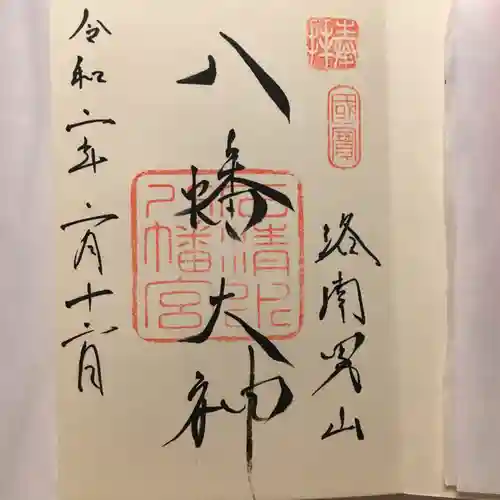 奉拝
國寶
洛南男山
八幡大神
石清水八幡宮
令和二年二月十六日